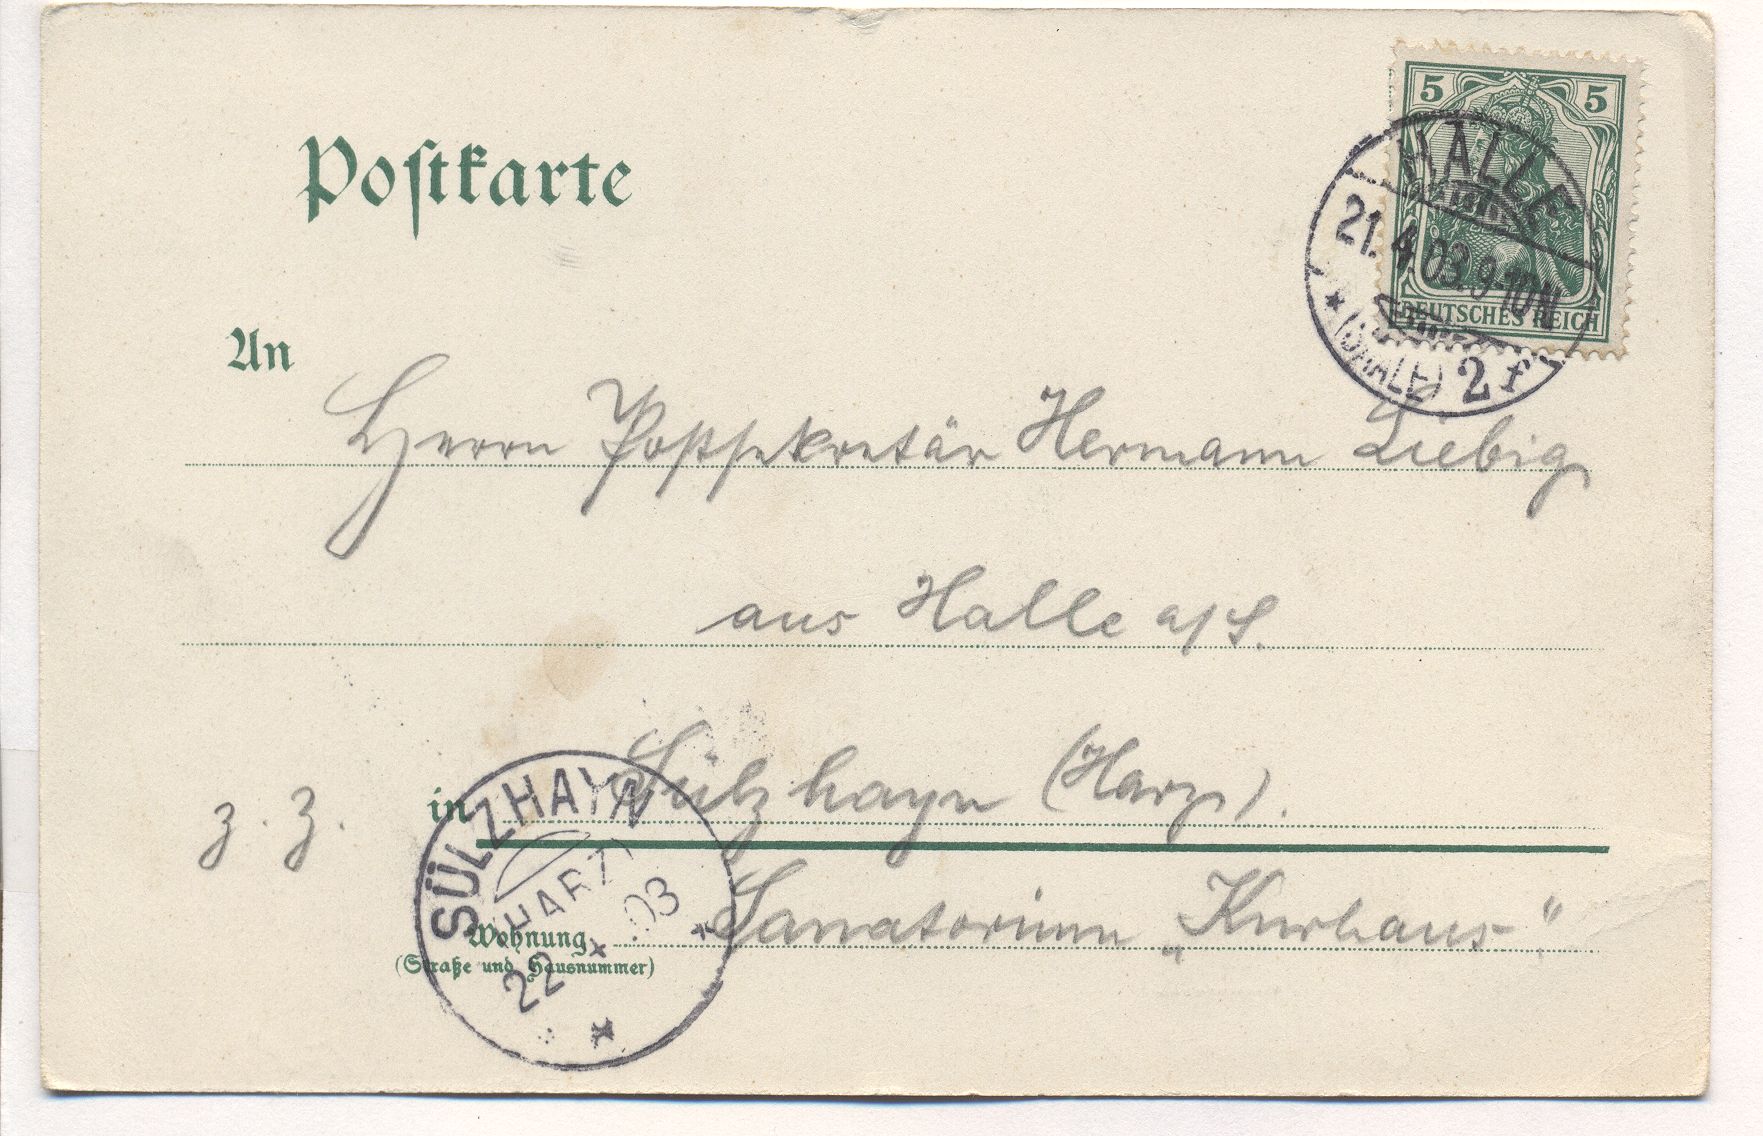 Postkarte
5 5
DEUTSCHES REICH
HALLE
21.4.03.9-10N
* (SAALE) 2 f
An
Herrn Postsekretär Hermann Liebig
aus Halle a/S.
z. Z. in Sülzhayn (Harz).
Wohnung Sanatorium „Kurhaus“
(Straße und Hausnummer)
SÜLZHAYN
(HARZ)
22 .03